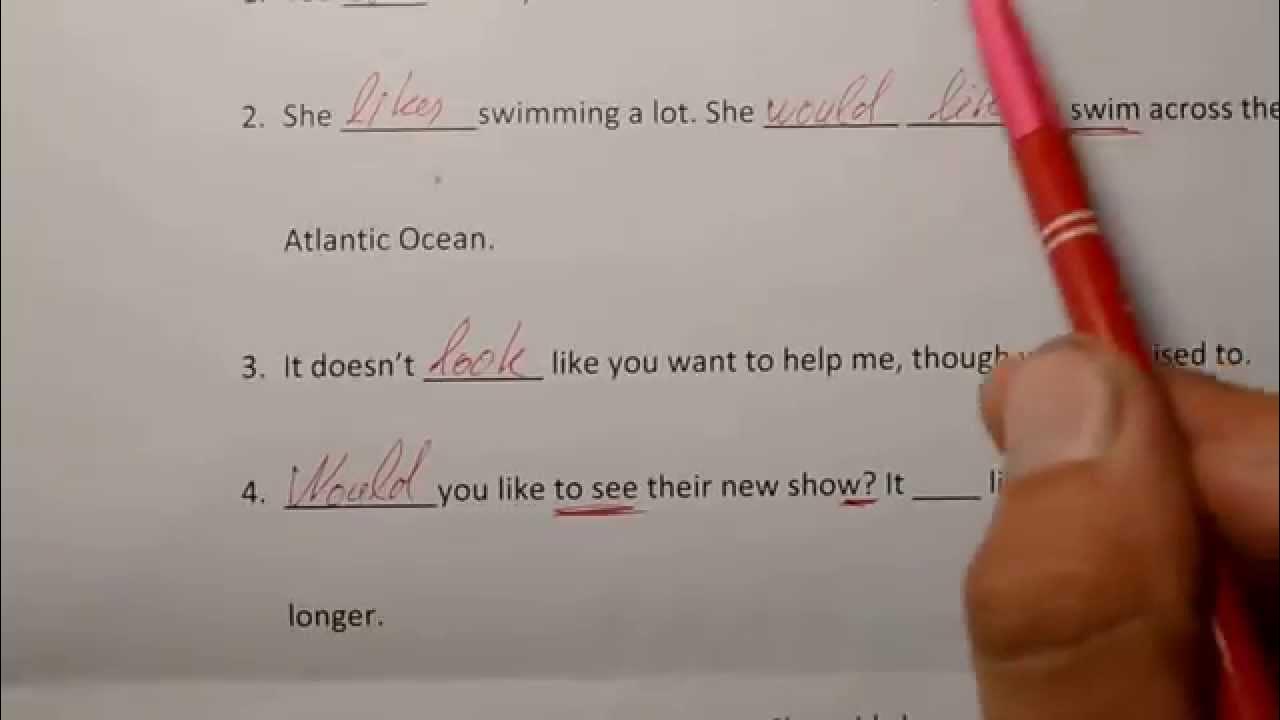 2. She likes swimming a lot. She would like swim across the
Atlantic Ocean.
3. It doesn't look like you want to help me, though
4. Would you like to see their new show? It ____
longer.